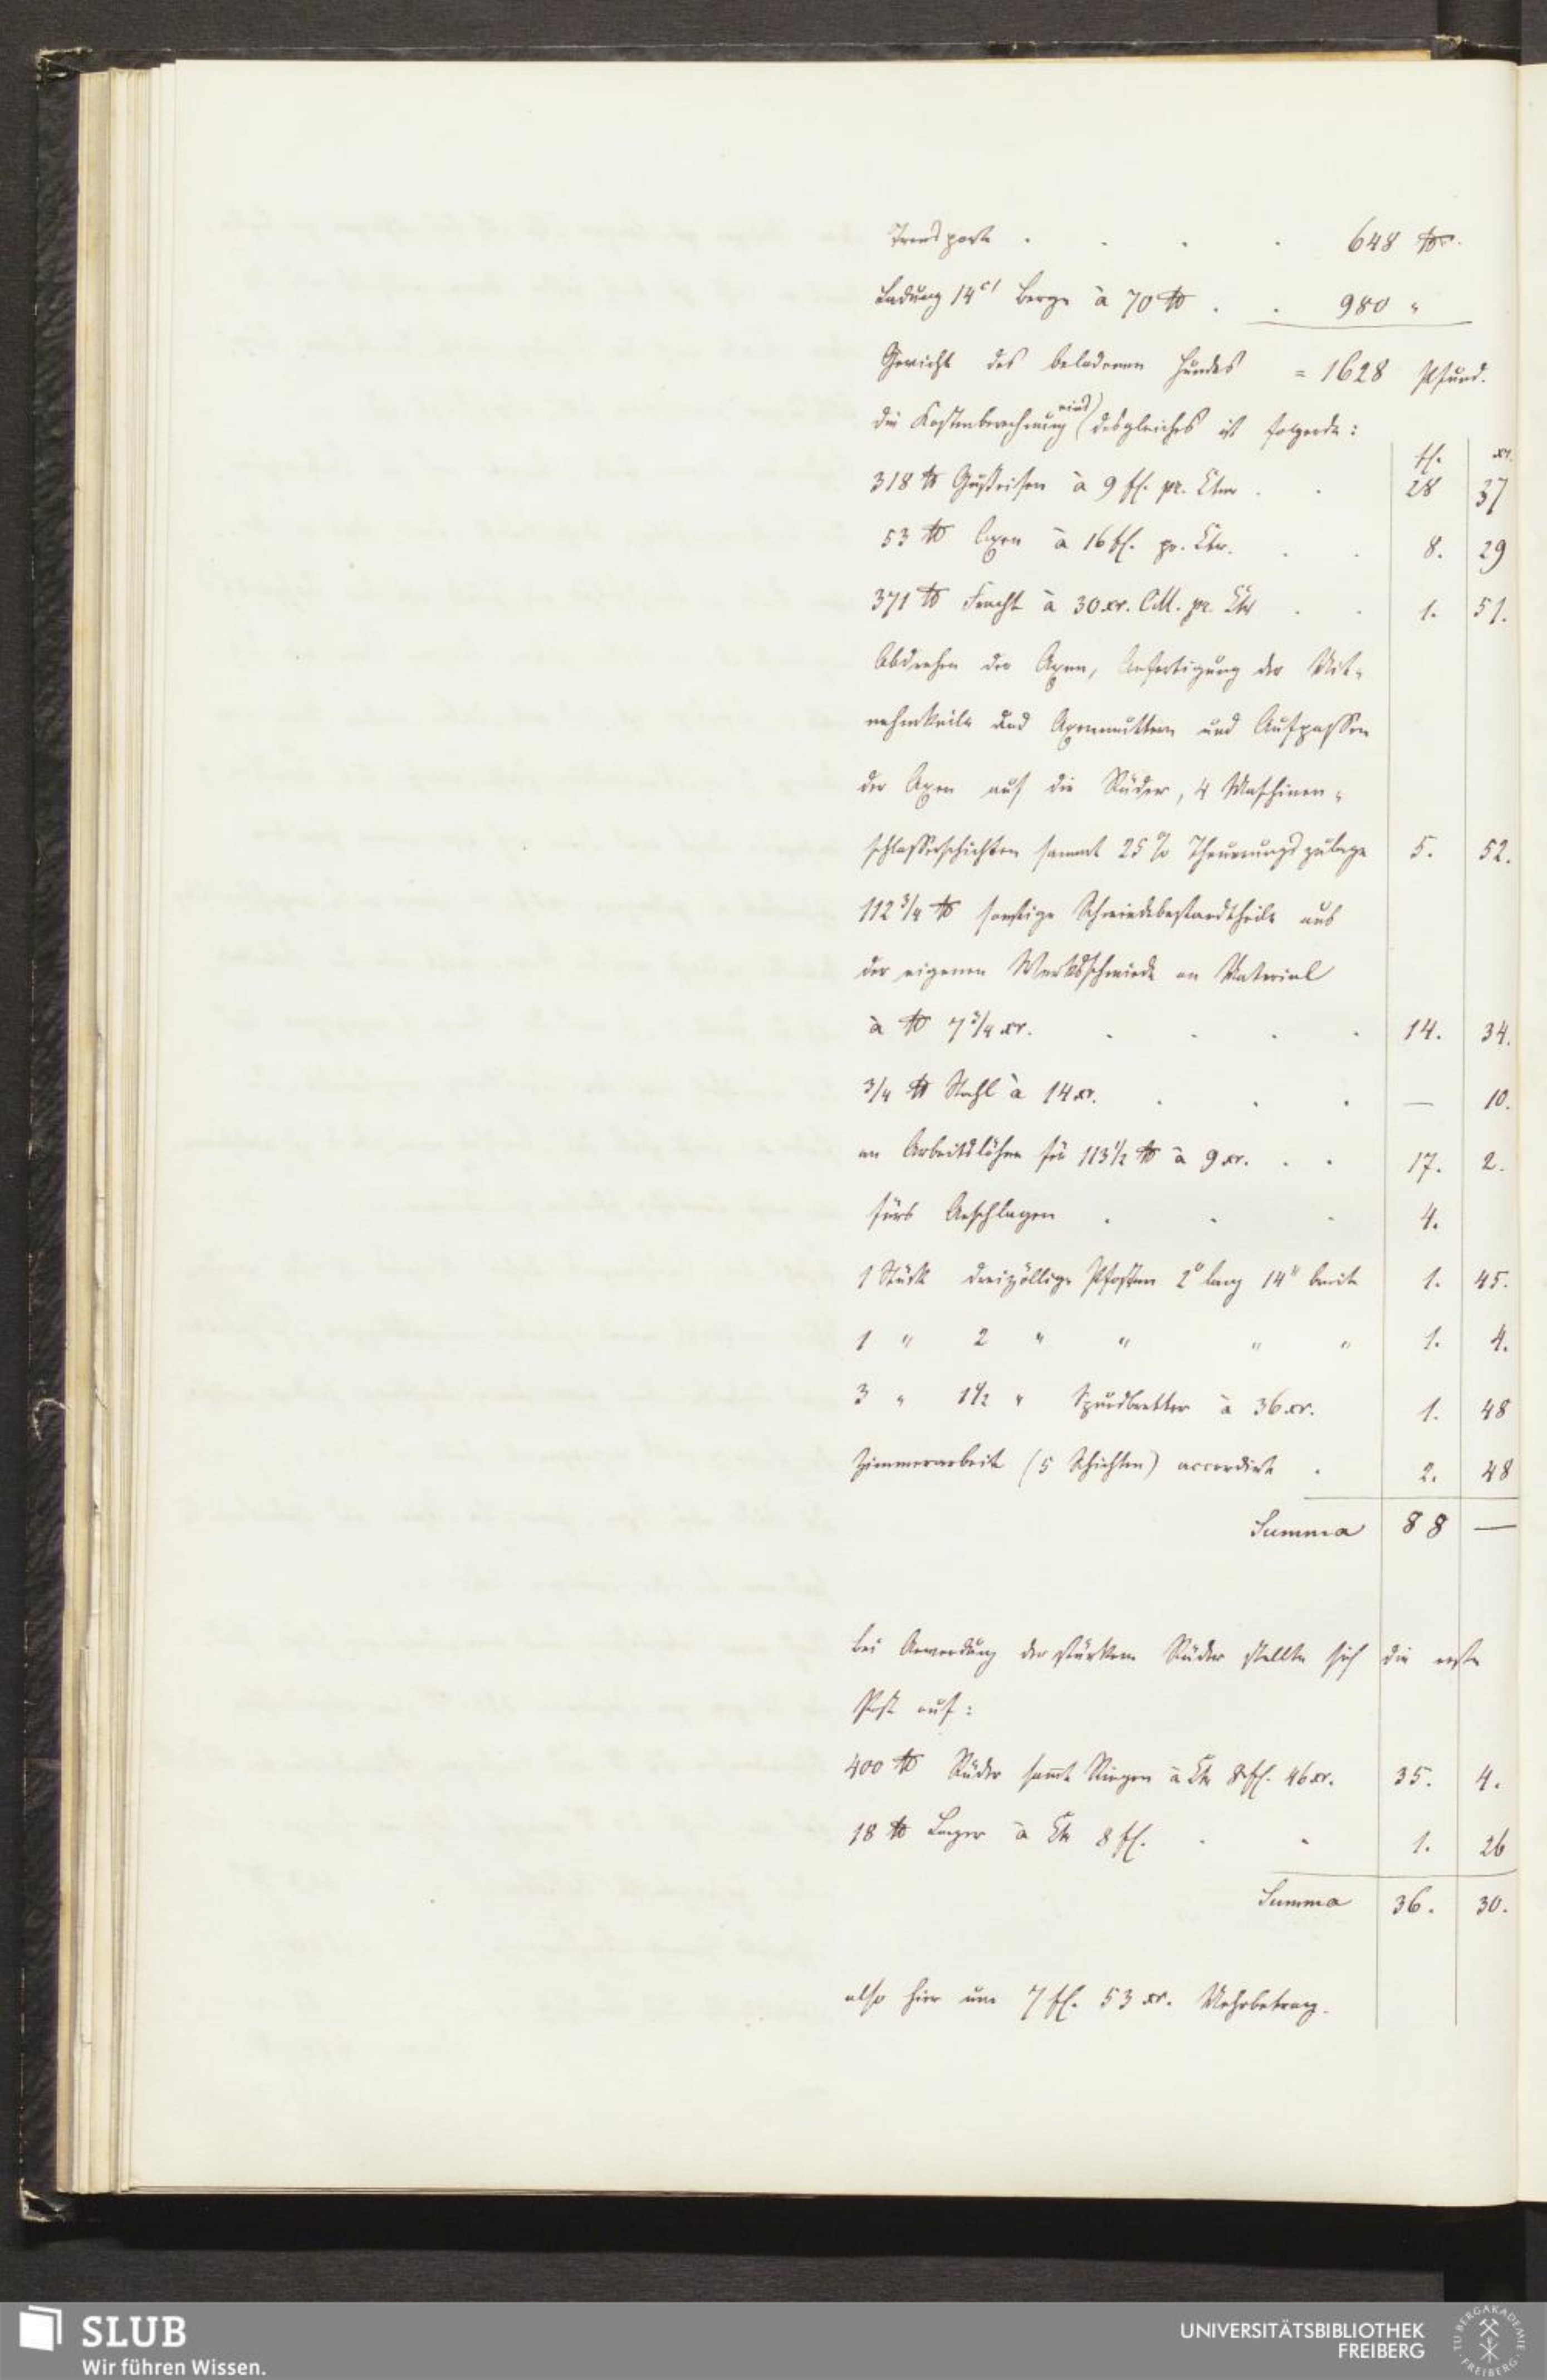 Transporte . . . . 648 ℔.
Ladung 14 c' Berge à 70 ℔ . . 980 "
Gewicht des beladenen Hundes = 1628 Pfund.
die Kostenberechnung (eines) desgleichen ist folgende:
fl. xr.
318 ℔ Gußeisen à 9 fl. pr. Ctnr . . 28 37
53 ℔ Axen à 16 fl. pr. Ctr. . . 8. 29
371 ℔ Fracht à 30 xr. CM. pr. Ctr . . 1. 51.
Abdrehen der Axen, Anfertigung der Mit-
nehmkeile und Axenmuttern und Aufpassen
der Axen auf die Räder, 4 Maschinen-
schlosserschichten sammt 25 % Theuerungszulage 5. 52.
112 3/4 ℔ sonstige Schmiedebestandtheile aus
der eigenen Werksschmiede an Material
à ℔ 7 3/4 xr. . . . . 14. 34.
3/4 ℔ Stahl à 14 xr. . . . — 10.
an Arbeitslöhne für 113 1/2 ℔ à 9 xr. . . 17. 2.
fürs Anschlagen . . . 4.
1 Stück dreizöllige Pfosten 2° lang 14" breit 1. 45.
1 " 2 " " " " 1. 4.
3 " 1 1/2 " Spundbretter à 36 xr. 1. 48
Zimmerarbeit (5 Schichten) accordirt . 2. 48
Summa 88 —
bei Anwendung der stärkern Räder stellte sich die erste
Post auf:
400 ℔ Räder samt Ringen à Ctr 8 fl. 46 xr. 35. 4.
18 ℔ Lager à Ctr 8 fl. . . 1. 26
Summa 36. 30.
also hier um 7 fl. 53 xr. Mehrbetrag.
SLUB
Wir führen Wissen.
UNIVERSITÄTSBIBLIOTHEK
FREIBERG
TU BERGAKADEMIE
FREIBERG